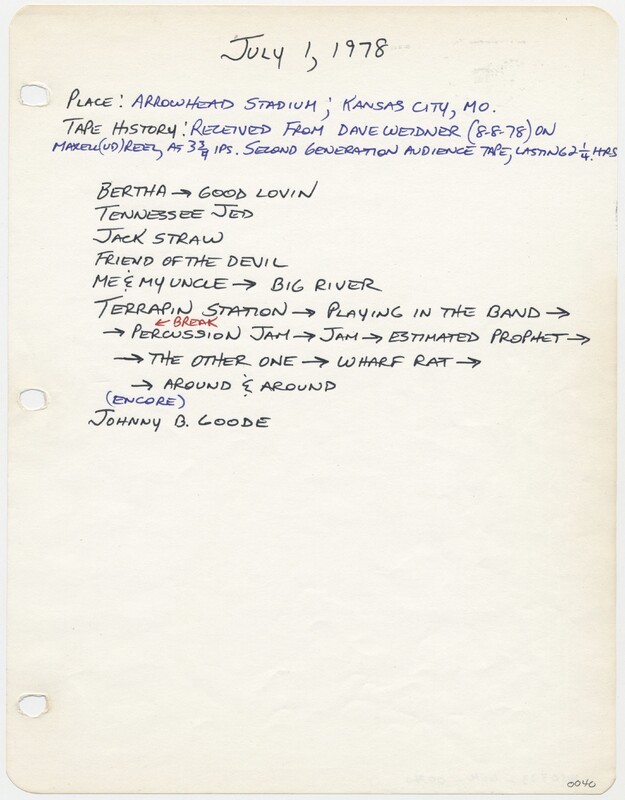 JULY 1, 1978
PLACE: ARROWHEAD STADIUM; KANSAS CITY, MO.
TAPE HISTORY: RECEIVED FROM DAVE WEIDNER (8-8-78) ON
MAXELL (UD) REEL, AT 3 3/4 IPS. SECOND GENERATION AUDIENCE TAPE, LASTING 2 1/4 HRS
BERTHA → GOOD LOVIN
TENNESSEE JED
JACK STRAW
FRIEND OF THE DEVIL
ME & MY UNCLE → BIG RIVER
TERRAPIN STATION → PLAYING IN THE BAND →
← BREAK
→ PERCUSSION JAM → JAM → ESTIMATED PROPHET →
→ THE OTHER ONE → WHARF RAT →
→ AROUND & AROUND
(ENCORE)
JOHNNY B. GOODE
0040